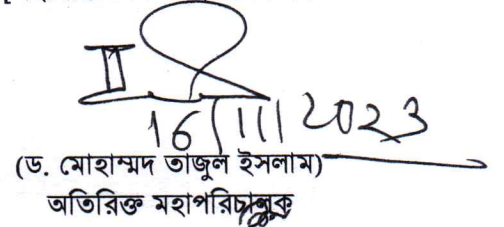 16/11/2023
(ড. মোহাম্মদ তাজুল ইসলাম)
অতিরিক্ত মহাপরিচালক